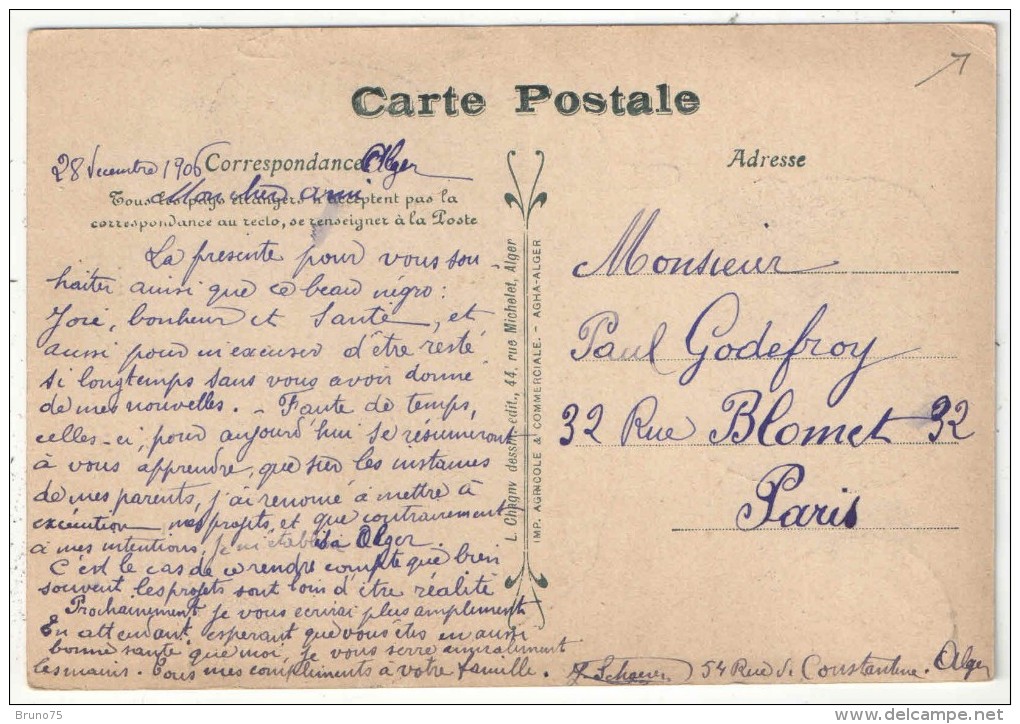 Carte Postale
28 Decembre 1906 Correspondance Alger
Mon cher ami
Tous les pays étrangers n'acceptent pas la
correspondance au recto, se renseigner à la Poste
La presente pour vous sou-
haiter ainsi que ce beau négro:
Joie, bonheur et Santé, et
aussi pour m'excuser d'être resté
si longtemps sans vous avoir donné
de mes nouvelles. - Faute de temps,
celles-ci, pour aujourd'hui se résumeront
à vous apprendre, que sur les instances
de mes parents, j'ai renoncé à mettre à
exécution mes projets, et que contrairement
à mes intentions, je m'établis à Alger.
C'est le cas de ce rendre compte que bien
souvent les projets sont loin d'être réalité
Prochainement je vous ecrirai plus amplement
En attendant, esperant que vous êtes en aussi
bonne santé que moi, je vous serre amicalement
les mains. Tous mes compliments à votre famille.
54 Rue de Constantine. Alger
L. Chagny dessin. édit., 44, rue Michelet, Alger
IMP. AGRICOLE & COMMERCIALE. - AGHA-ALGER
Adresse
Monsieur
Paul Godefroy
32 Rue Blomet 32
Paris
Bruno75
http://www.delcampe.net